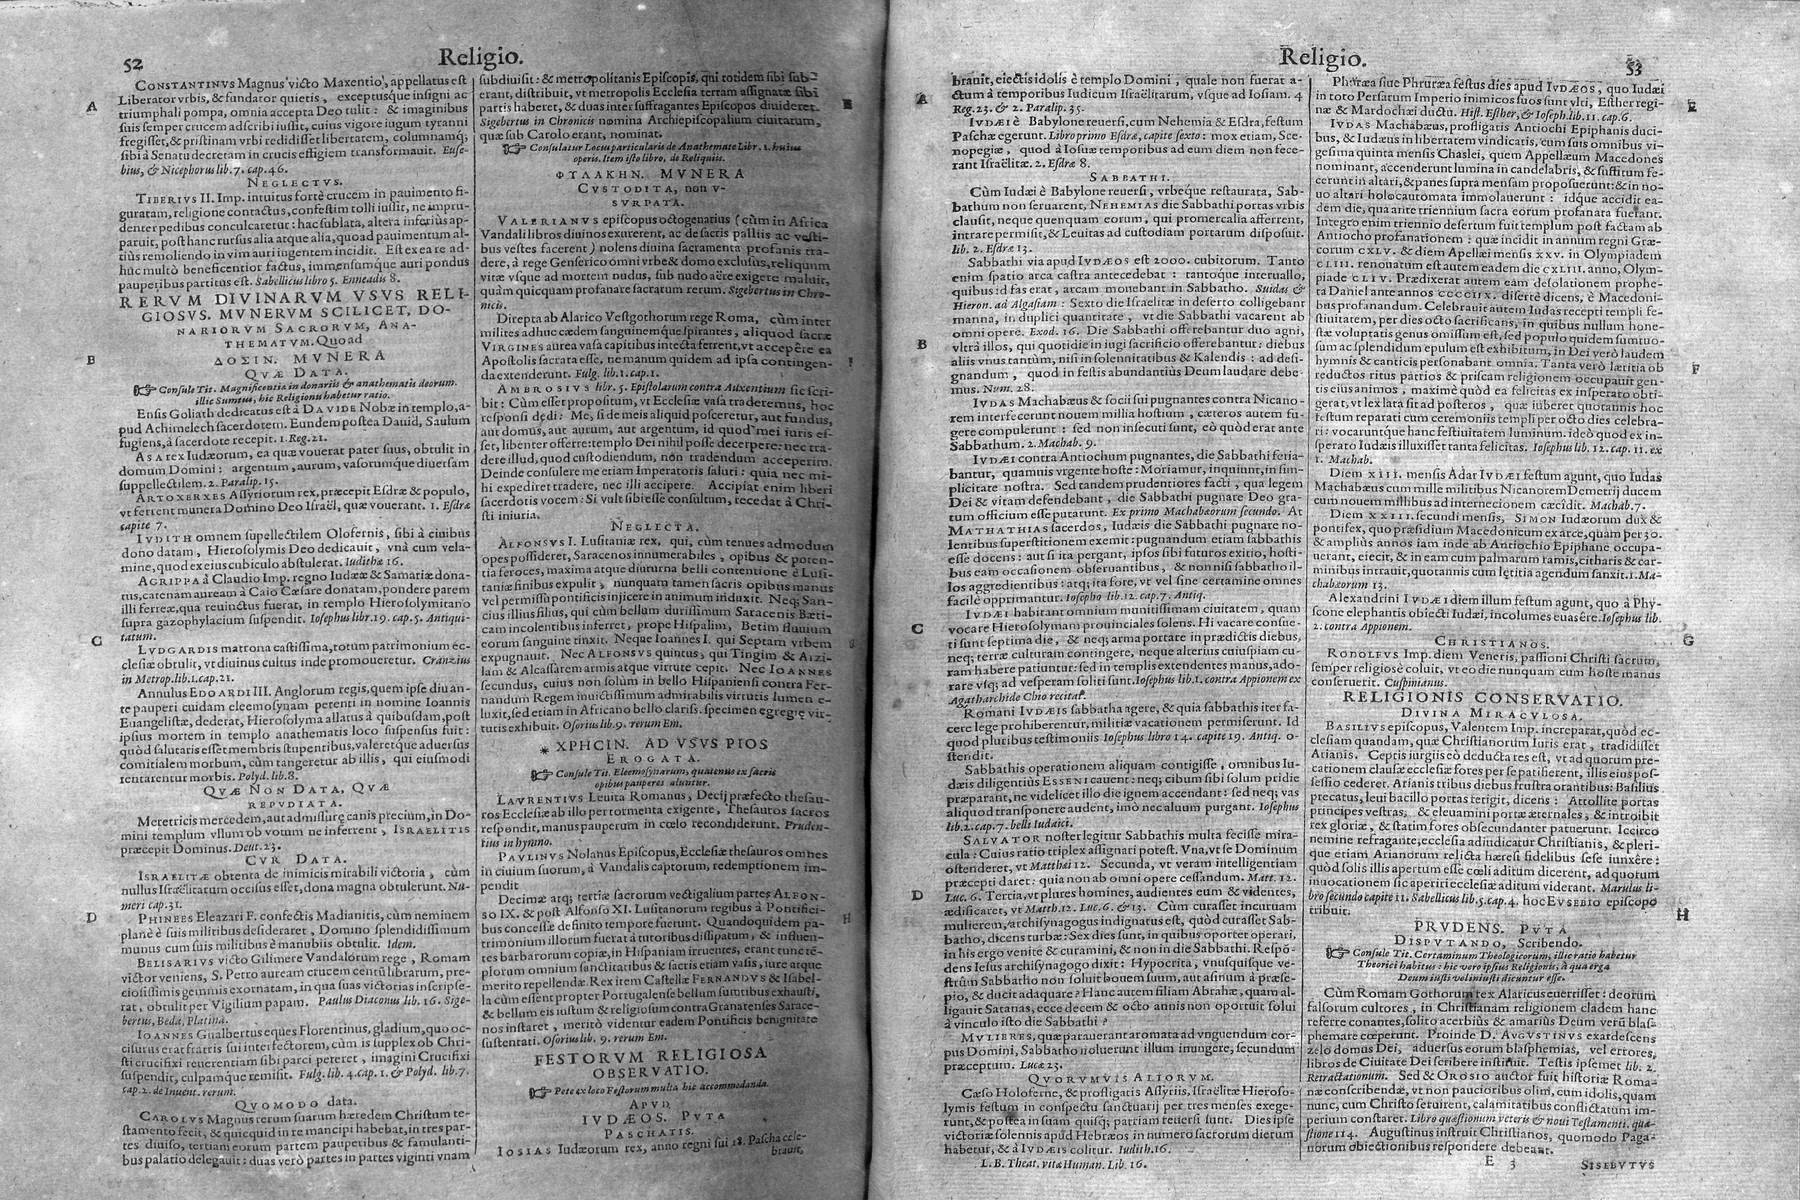 52
Religio.
CONSTANTINVS Magnus victo Maxentio, appellatus est
Liberator vrbis, & fundator quietis, exceptusque insigni ac
triumphali pompa, omnia accepta Deo tulit: & imaginibus
suis semper crucem adscribi iussit, cuius vigore iugum tyranni
fregisset, & pristinam vrbi redidisset libertatem, columnamq;
sibi à Senatu decretam in crucis effigiem transformauit. Euse-
bius, & Nicephorus lib. 7. cap. 46.
NEGLECTVS.
TIBERIVS II. Imp. intuitus fortè crucem in pauimento fi-
guratam, religione contactus, confestim tolli iussit, ne impru-
denter pedibus conculcaretur: hac sublata, altera inferiùs ap-
paruit, post hanc rursus alia atque alia, quoad pauimentum al-
tiùs remoliendo in vim auri ingentem incidit. Est ex ea re ad-
huc multò beneficentior factus, immensumque auri pondus
pauperibus partitus est. Sabellicus libro 5. Enneadis 8.
RERVM DIVINARVM VSVS RELI-
GIOSVS. MVNERVM SCILICET, DO-
NARIORVM SACRORVM, ANA-
THEMATVM. Quoad
ΔΟΣΙΝ. MVNERA
QVÆ DATA.
Consule Tit. Magnificentia in donariis & anathematis deorum.
illic Sumtus, hic Religionis habetur ratio.
Ensis Goliath dedicatus est à DAVIDE Nobæ in templo, a-
pud Achimelech sacerdotem. Eundem postea Dauid, Saulum
fugiens, à sacerdote recepit. 1. Reg. 21.
ASA rex Iudæorum, ea quæ vouerat pater suus, obtulit in
domum Domini: argentum, aurum, vasorumque diuersam
suppellectilem. 2. Paralip. 15.
ARTOXERXES Assyriorum rex, præcepit Esdræ & populo,
vt ferrent munera Domino Deo Israël, quæ vouerant. 1. Esdræ
capite 7.
IVDITH omnem supellectilem Olofernis, sibi à ciuibus
dono datam, Hierosolymis Deo dedicauit, vnà cum vela-
mine, quod ex eius cubiculo abstulerat. Iudithæ 16.
AGRIPPA à Claudio Imp. regno Iudææ & Samariæ dona-
tus, catenam auream à Caio Cæsare donatam, pondere parem
illi ferreæ, qua reuinctus fuerat, in templo Hierosolymitano
supra gazophylacium suspendit. Iosephus libr. 19. cap. 5. Antiqui-
tatum.
LVDGARDIS matrona castissima, totum patrimonium ec-
clesiæ obtulit, vt diuinus cultus inde promoueretur. Cranzius
in Metrop. lib. 1. cap. 21.
Annulus EDOARDI III. Anglorum regis, quem ipse diu an-
te pauperi cuidam eleemosynam petenti in nomine Ioannis
Euangelistæ, dederat, Hierosolyma allatus à quibusdam, post
ipsius mortem in templo anathematis loco suspensus fuit:
quòd salutaris esset membris stupentibus, valeretque aduersus
comitialem morbum, cùm tangeretur ab illis, qui eiusmodi
tentarentur morbis. Polyd. lib. 8.
QVÆ NON DATA, QVÆ
REPVDIATA.
Meretricis mercedem, aut admissuræ canis precium, in Do-
mini templum vllum ob votum ne inferrent, ISRAELITIS
præcepit Dominus. Deut. 23.
CVR DATA.
ISRAELITÆ obtenta de inimicis mirabili victoria, cùm
nullus Israëlitarum occisus esset, dona magna obtulerunt. Nu-
meri cap. 31.
PHINEES Eleazari F. confectis Madianitis, cùm neminem
planè è suis militibus desideraret, Domino splendidissimum
munus cum suis militibus è manubiis obtulit. Idem.
BELISARIVS victo Gilimere Vandalorum rege, Romam
victor veniens, S. Petro auream crucem centũ librarum, pre-
ciosissimis gemmis exornatam, in qua suas victorias inscripse-
rat, obtulit per Vigilium papam. Paulus Diaconus lib. 16. Sige-
bertus, Beda, Platina.
IOANNES Gualbertus eques Florentinus, gladium, quo oc-
cisurus erat fratris sui interfectorem, cùm is supplex ob Chri-
sti crucifixi reuerentiam sibi parci peteret, imagini Crucifixi
suspendit, culpamque remisit. Fulg. lib. 4. cap. 1. & Polyd. lib. 7.
cap. 2. de Inuent. rerum.
QVOMODO data.
CAROLVS Magnus rerum suarum hæredem Christum te-
stamento fecit, & quicquid in re mancipi habebat, in tres par-
tes diuiso, tertiam eorum partem pauperibus & famulanti-
bus palatio delegauit: duas verò partes in partes viginti vnam
A
B
C
D
subdiuisit: & metropolitanis Episcopis, qui totidem sibi sub-
erant, distribuit, vt metropolis Ecclesia tertiam assignatæ sibi
partis haberet, & duas inter suffraganteis Episcopos diuideret.
Sigebertus in Chronicis nomina Archiepiscopalium ciuitatum,
quæ sub Carolo erant, nominat.
Consulatur Locus particularis de Anathemate Libr. 1. huius
operis. Item isto libro, de Reliquiis.
ΦΥΛΑΚΗΝ. MVNERA
CVSTODITA, non v-
SVRPATA.
VALERIANVS episcopus octogenarius (cùm in Africa
Vandali libros diuinos exurerent, ac de sacris palliis ac vesti-
bus vestes facerent) nolens diuina sacramenta profanis tra-
dere, à rege Genserico omni vrbe & domo exclusus, reliquum
vitæ vsque ad mortem nudus, sub nudo aëre exigere maluit,
quàm quicquam profanare sacratum rerum. Sigebertus in Chro-
nicis.
Direpta ab Alarico Vestgothorum rege Roma, cùm inter
milites adhuc cædem sanguinemque spirantes, aliquod sacræ
VIRGINES aurea vasa capitibus intecta ferrent, vt accepêre ea
Apostolis sacrata esse, ne manum quidem ad ipsa contingen-
da extenderunt. Fulg. lib. 1. cap. 1.
AMBROSIVS libr. 5. Epistolarum contra Auxentium sic scri-
bit: Cùm esset propositum, vt Ecclesiæ vasa traderemus, hoc
responsi dedi: Me, si de meis aliquid posceretur, aut fundus,
aut domus, aut aurum, aut argentum, id quod mei iuris es-
set, libenter offerre: templo Dei nihil posse decerpere: nec tra-
dere illud, quod custodiendum, non tradendum acceperim.
Deinde consulere me etiam Imperatoris saluti: quia nec mi-
hi expediret tradere, nec illi accipere. Accipiat enim liberi
sacerdotis vocem: Si vult sibi esse consultum, recedat à Chri-
sti iniuria.
NEGLECTA.
ALFONSVS I. Lusitaniæ rex, qui, cùm tenues admodum
opes possideret, Saracenos innumerabiles, opibus & poten-
tia feroces, maxima atque diuturna belli contentione è Lusi-
taniæ finibus expulit, nunquam tamen sacris opibus manus
vel permissu pontificis injicere in animum induxit. Neq; San-
cius illius filius, qui cùm bellum durissimum Saracenis Bæti-
cam incolentibus inferret, prope Hispalim, Betim fluuium
eorum sanguine tinxit. Neque Ioannes I. qui Septam vrbem
expugnauit. Nec ALFONSVS quintus, qui Tingim & Arzi-
lam & Alcassarem armis atque virtute cepit. Nec IOANNES
secundus, cuius non solùm in bello Hispaniensi contra Fer-
nandum Regem inuictissimum admirabilis virtutis lumen e-
luxit, sed etiam in Africano bello clariss. specimen egregiæ vir-
tutis exhibuit. Osorius lib. 9. rerum Em.
* ΧΡΗCΙΝ. AD VSVS PIOS
EROGATA.
Consule Tit. Eleemosynarum, quatenus ex sacris
opibus pauperes aluntur.
LAVRENTIVS Leuita Romanus, Decij præfecto thesau-
ros Ecclesiæ ab illo per tormenta exigente, Thesauros sacros
respondit, manus pauperum in cœlo recondiderunt. Pruden-
tius in hymno.
PAVLINVS Nolanus Episcopus, Ecclesiæ thesauros omnes
in ciuium suorum, à Vandalis captorum, redemptionem im-
pendit
Decimæ atq; tertiæ sacrorum vectigalium partes ALFON-
SO IX. & post Alfonso XI. Lusitanorum regibus à Pontifici-
bus concessæ definito tempore fuerunt. Quandoquidem pa-
trimonium illorum fuerat à tutoribus dissipatum, & influen-
tes barbarorum copiæ, in Hispaniam irruentes, erant tunc tẽ-
plorum omnium sanctitatibus & sacris etiam vasis, iure atque
merito repellendæ. Rex item Castellæ FERNANDVS & Isabel-
la cùm essent propter Portugalense bellum sumtibus exhausti,
& bellum eis iustum & religiosum contra Granatenses Sarace-
nos instaret, meritò videntur eadem Pontificis benignitate
sustentati. Osorius lib. 9. rerum Em.
FESTORVM RELIGIOSA
OBSERVATIO.
Pete ex loco Festorum multa hic accommodanda.
APVD
IVDÆOS. PVTA
PASCHATIS.
IOSIAS Iudæorum rex, anno regni sui 18. Pascha cele-
brauit,
E
F
G
H
Religio.
53
brauit, eiectis idolis è templo Domini, quale non fuerat a-
ctum à temporibus Iudicum Israëlitarum, vsque ad Iosiam. 4
Reg. 23. & 2. Paralip. 35.
IVDÆI è Babylone reuersi, cum Nehemia & Esdra, festum
Paschæ egerunt. Libro primo Esdræ, capite sexto: mox etiam, Sce-
nopegiæ, quod à Iosuæ temporibus ad eum diem non fece-
rant Israëlitæ. 2. Esdræ 8.
SABBATHI.
Cùm Iudæi è Babylone reuersi, vrbeque restaurata, Sab-
bathum non seruarent, NEHEMIAS die Sabbathi portas vrbis
clausit, neque quenquam eorum, qui promercalia afferrent,
intrare permisit, & Leuitas ad custodiam portarum disposuit.
lib. 2. Esdræ 13.
Sabbathi via apud IVDÆOS est 2000. cubitorum. Tanto
enim spatio arca castra antecedebat: tantoque interuallo,
quibus id fas erat, arcam monebant in Sabbatho. Suidas &
Hieron. ad Algasiam: Sexto die Israëlitæ in deserto colligebant
manna, in duplici quantitate, vt die Sabbathi vacarent ab
omni opere. Exod. 16. Die Sabbathi offerebantur duo agni,
vltrà illos, qui quotidie in iugi sacrificio offerebantur: diebus
aliis vnus tantùm, nisi in solennitatibus & Kalendis: ad desi-
gnandum, quod in festis abundantiùs Deum laudare debe-
mus. Num. 28.
IVDAS Machabæus & socii sui pugnantes contra Nicano-
rem interfecerunt nouem millia hostium, cæteros autem fu-
gere compulerunt: sed non insecuti sunt, eò quòd erat ante
Sabbathum. 2. Machab. 9.
IVDÆI contra Antiochum pugnantes, die Sabbathi feria-
bantur, quamuis vrgente hoste: Moriamur, inquiunt, in sim-
plicitate nostra. Sed tandem prudentiores facti, qua legem
Dei & vitam defendebant, die Sabbathi pugnare Deo gra-
tum officium esse putarunt. Ex primo Machabæorum secundo. At
MATHATHIAS sacerdos, Iudæis die Sabbathi pugnare no-
lentibus superstitionem exemit: pugnandum etiam sabbathis
esse docens: aut si ita pergant, ipsos sibi futuros exitio, hosti-
bus eam occasionem obseruantibus, & non nisi sabbatho il-
los aggredientibus: atq; ita fore, vt vel sine certamine omnes
facilè opprimantur. Iosepho lib. 12. cap. 7. Antiq.
IVDÆI habitant omnium munitissimam ciuitatem, quam
vocare Hierosolymam prouinciales solens. Hi vacare consue-
ti sunt septima die, & neq; arma portare in prædictis diebus,
neq; terræ culturam contingere, neque alterius cuiuspiam cu-
ram habere patiuntur: sed in templis extendentes manus, ado-
rare vsq; ad vesperam soliti sunt. Iosephus lib. 1. contra Appionem ex
Agatharchide Clno recitat.
Romani IVDÆIS sabbatha agere, & quia sabbathis iter fa-
cere lege prohiberentur, militiæ vacationem permiserunt. Id
quod pluribus testimoniis Iosephus libro 14. capite 19. Antiq. o-
stendit.
Sabbathis operationem aliquam contigisse, omnibus Iu-
dæis diligentiùs ESSENI cauent: neq; cibum sibi solùm pridie
præparant, ne videlicet illo die ignem accendant: sed neq; vas
aliquod transponere audent, imò nec aluum purgant. Iosephus
lib. 2. cap. 7. belli Iudaici.
SALVATOR noster legitur Sabbathis multa fecisse mira-
cula: Cuius ratio triplex assignari potest. Vna, vt se Dominum
ostenderet, vt Matthæi 12. Secunda, vt veram intelligentiam
præcepti daret: quia non ab omni opere cessandum. Matt. 12.
Luc. 6. Tertia, vt plures homines, audientes eum & videntes,
ædificaret, vt Matth. 12. Luc. 6. & 13. Cùm curasset incuruam
mulierem, archisynagogus indignatus est, quòd curasset Sab-
batho, dicens turbæ: Sex dies sunt, in quibus oportet operari,
in his ergo venite & curamini, & non in die Sabbathi. Respõ-
dens Iesus archisynagogo dixit: Hypocrita, vnusquisque ve-
strûm Sabbatho non soluit bouem suum, aut asinum à præse-
pio, & ducit adaquare? Hanc autem filiam Abrahæ, quam al-
ligauit Satanas, ecce decem & octo annis non oportuit solui
à vinculo isto die Sabbathi?
MVLIERES, quæ parauerant aromata ad vnguendum cor-
pus Domini, Sabbatho noluerunt illum inungere, secundum
præceptum. Lucæ 23.
QVORVMVIS ALIORVM.
Cæso Holoferne, & profligatis Assyriis, Israëlitæ Hieroso-
lymis festum in conspectu sanctuarij per tres menses exege-
runt, & postea in suam quisq; patriam reuersi sunt. Dies ipse
victoriæ solennis apud Hebræos in numero sacrorum dierum
habetur, & à IVDÆIS colitur. Iudith. 16.
L. B. Theat. vitæ Human. Lib. 16.
A
B
C
D
Phruræa siue Phruræa festus dies apud IVDÆOS, quo Iudæi
in toto Persarum Imperio inimicos suos sunt vlti, Esther regi-
næ & Mardochæi ductu. Hist. Esther, & Ioseph. lib. 11. cap. 6.
IVDAS Machabæus, profligatis Antiochi Epiphanis duci-
bus, & Iudæis in libertatem vindicatis, cum suis omnibus vi-
gesima quinta mensis Chaslei, quem Appellæum Macedones
nominant, accenderunt lumina in candelabris, & suffitum fe-
cerunt in altari, & panes supra mensam proposuerunt: & in no-
uo altari holocautomata immolauerunt: idque accidit ea-
dem die, qua ante triennium sacra eorum profanata fuerant.
Integro enim triennio desertum fuit templum post factam ab
Antiocho profanationem: quæ incidit in annum regni Græ-
corum CXLV. & diem Apellæi mensis XXV. in Olympiadem
CLIII. renouatum est autem eadem die CXLIII. anno, Olym-
piade CLIV. Prædixerat autem eam desolationem prophe-
ta Daniel ante annos CCCCIIX. disertè dicens, è Macedoni-
bus profanandum. Celebrauit autem Iudas recepti templi fe-
stiuitatem, per dies octo sacrificans, in quibus nullum hone-
stæ voluptatis genus omissum est, sed populo quidem sumtuo-
sum ac splendidum epulum est exhibitum, in Dei verò laudem
hymnis & canticis personabant omnia. Tanta verò lætitia ob
reductos ritus patrios & priscam religionem occupauit gen-
tis eius animos, maximè quòd ea felicitas ex insperato obti-
gerat, vt lex lata sit ad posteros, quæ iuberet quotannis hoc
festum reparati cum ceremoniis templi per octo dies celebra-
ri: vocaruntque hanc festiuitatem luminum. ideò quod ex in-
sperato Iudæis illuxisset tanta felicitas. Iosephus lib. 12. cap. 11. ex
1. Machab.
Diem XIII. mensis Adar IVDÆI festum agunt, quo Iudas
Machabæus cum mille militibus Nicanorem Demetrij ducem
cum nouem millibus ad internecionem cæcîdit. Machab. 7.
Diem XXIII. secundi mensis, SIMON Iudæorum dux &
pontifex, quo præsidium Macedonicum ex arce, quam per 30.
& ampliùs annos iam inde ab Antiocho Epiphane occupa-
uerant, eiecit, & in eam cum palmarum ramis, citharis & car-
minibus intrauit, quotannis cum lętitia agendum sanxit. 1. Ma-
chabæorum 13.
Alexandrini IVDÆI diem illum festum agunt, quo à Phy-
scone elephantis obiecti Iudæi, incolumes euasêre. Iosephus lib.
2. contra Appionem.
CHRISTIANOS.
RODOLFVS Imp. diem Veneris, passioni Christi sacrum,
semper religiosè coluit, vt eo die nunquam cum hoste manus
conseruerit. Cuspinianus.
RELIGIONIS CONSERVATIO.
DIVINA MIRACVLOSA.
BASILIVS episcopus, Valentem Imp. increparat, quòd ec-
clesiam quandam, quæ Christianorum Iuris erat, tradidisset
Arianis. Ceptis iurgiis eò deducta res est, vt ad quorum pre-
cationem clausæ ecclesiæ fores per se patefierent, illis eius pos-
sessio cederet. Arianis tribus diebus frustra orantibus: Basilius
precatus, leui bacillo portas tetigit, dicens: Attollite portas
principes vestras, & eleuamini portæ æternales, & introibit
rex gloriæ, & statim fores obsecundanter patuerunt. Iccirco
nemine refragante, ecclesia adiudicatur Christianis, & pleri-
que etiam Arianorum relicta hæresi fidelibus sese iunxêre:
quòd solis illis apertum esse cœli aditum dicerent, ad quorum
inuocationem sic aperiri ecclesiæ aditum viderant. Marulus li-
bro secundo capite 11. Sabellicus lib. 5. cap. 4. hoc EVSEBIO episcopo
tribuit.
PRVDENS. PVTA
DISPVTANDO, Scribendo.
Consule Tit. Certaminum Theologicorum, illic ratio habetur
Theorici habitus: hic verò ipsius Religionis, à qua erga
Deum iusti vel iniusti dicuntur esse.
Cùm Romam Gothorum rex Alaricus euertisset: deorum
falsorum cultores, in Christianam religionem cladem hanc
referre conantes, solito acerbiùs & amariùs Deum verũ blas-
phemare cœperunt. Proinde D. AVGVSTINVS exardescens
zelo domus Dei, aduersus eorum blasphemias, vel errores,
libros de Ciuitate Dei scribere instituit. Testis ipsemet lib. 2.
Retractationum. Sed & OROSIO auctor fuit historiæ Roma-
næ conscribendæ, vt non paucioribus olim, cùm idolis, quam
nunc, cum Christo seruirent, calamitatibus conflictatum im-
perium constaret. Libro quæstionum veteris & noui Testamenti. quæ-
stione 114. Augustinus instruit Christianos, quomodo Paga-
norum obiectionibus respondere debeant.
E 3
SISEBVTVS
E
F
G
H